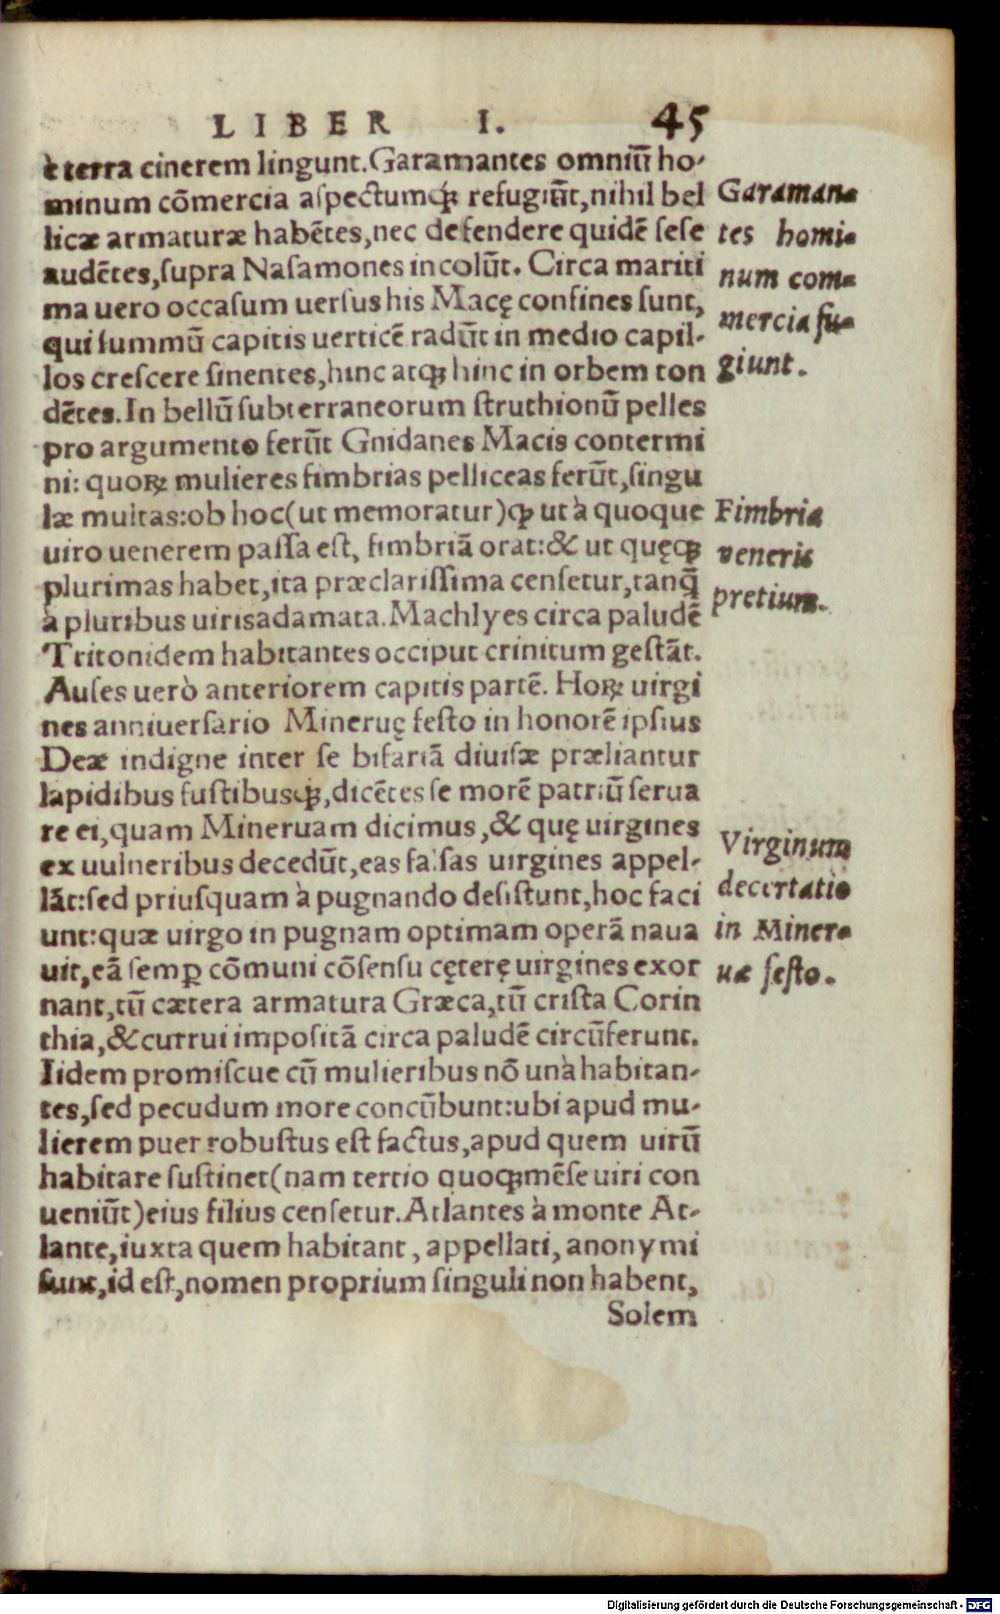 LIBER I. 45
è terra cinerem lingunt. Garamantes omniũ ho-
minum cõmercia aspectumq́ꝫ refugiũt, nihil bel
licæ armaturæ habẽtes, nec defendere quidẽ sese
audẽtes, supra Nasamones incolũt. Circa mariti
ma uero occasum uersus his Macę confines sunt,
qui summũ capitis uerticẽ radũt in medio capil-
los crescere sinentes, hinc atqꝫ hinc in orbem ton
dẽtes. In bellũ subterraneorum struthionũ pelles
pro argumento ferũt Gnidanes Macis contermi
ni: quoꝝ mulieres fimbrias pelliceas ferũt, singu
læ multas: ob hoc (ut memoratur) ꝙ ut à quoque
uiro uenerem passa est, fimbriã orat: & ut quęqꝫ
plurimas habet, ita præclarissima censetur, tanq̃
à pluribus uiris adamata. Machlyes circa paludẽ
Tritonidem habitantes occiput crinitum gestãt.
Auses uerò anteriorem capitis partẽ. Hoꝝ uirgi
nes anniuersario Mineruę festo in honorẽ ipsius
Deæ indigne inter se bifariã diuisæ præliantur
lapidibus fustibusq́ꝫ, dicẽtes se morẽ patriũ serua
re ei, quam Mineruam dicimus, & quę uirgines
ex uulneribus decedũt, eas falsas uirgines appel-
lãt: sed priusquam à pugnando desistunt, hoc faci
unt: quæ uirgo in pugnam optimam operã naua
uit, eã semꝑ cõmuni cõsensu cęterę uirgines exor
nant, tũ cætera armatura Græca, tũ crista Corin
thia, & currui impositã circa paludẽ circũferunt.
Iidem promiscue cũ mulieribus nõ unà habitan-
tes, sed pecudum more concũbunt: ubi apud mu-
lierem puer robustus est factus, apud quem uirũ
habitare sustinet (nam tertio quoqꝫ mẽse uiri con
ueniũt) eius filius censetur. Atlantes à monte At-
lante, iuxta quem habitant, appellati, anonymi
sunt, id est, nomen proprium singuli non habent,
Solem
Garaman-
tes homi-
num com-
mercia fu-
giunt.
Fimbria
veneris
pretium.
Virginum
decertatio
in Miner-
uæ festo.
Digitalisierung gefördert durch die Deutsche Forschungsgemeinschaft - DFG